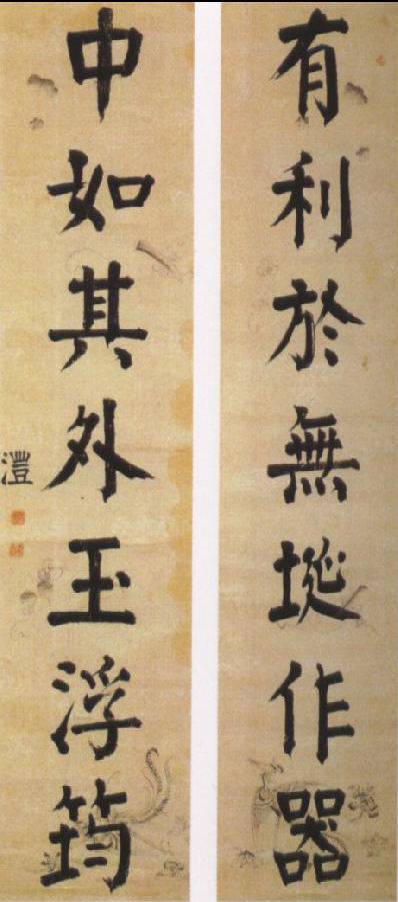 有利於無埏作器
中如其外玉浮筠
澧